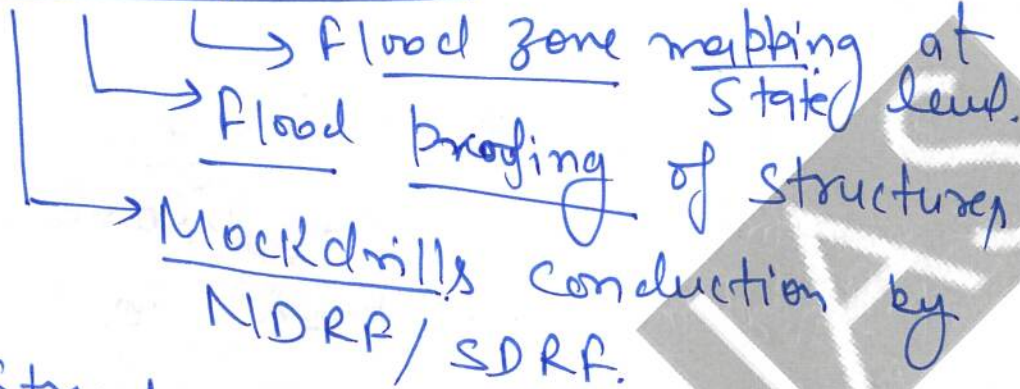 → Flood zone mapping at
State level.
→ Flood proofing of structures
→ Mockdrills conduction by
NDRF/SDRF.
IAS